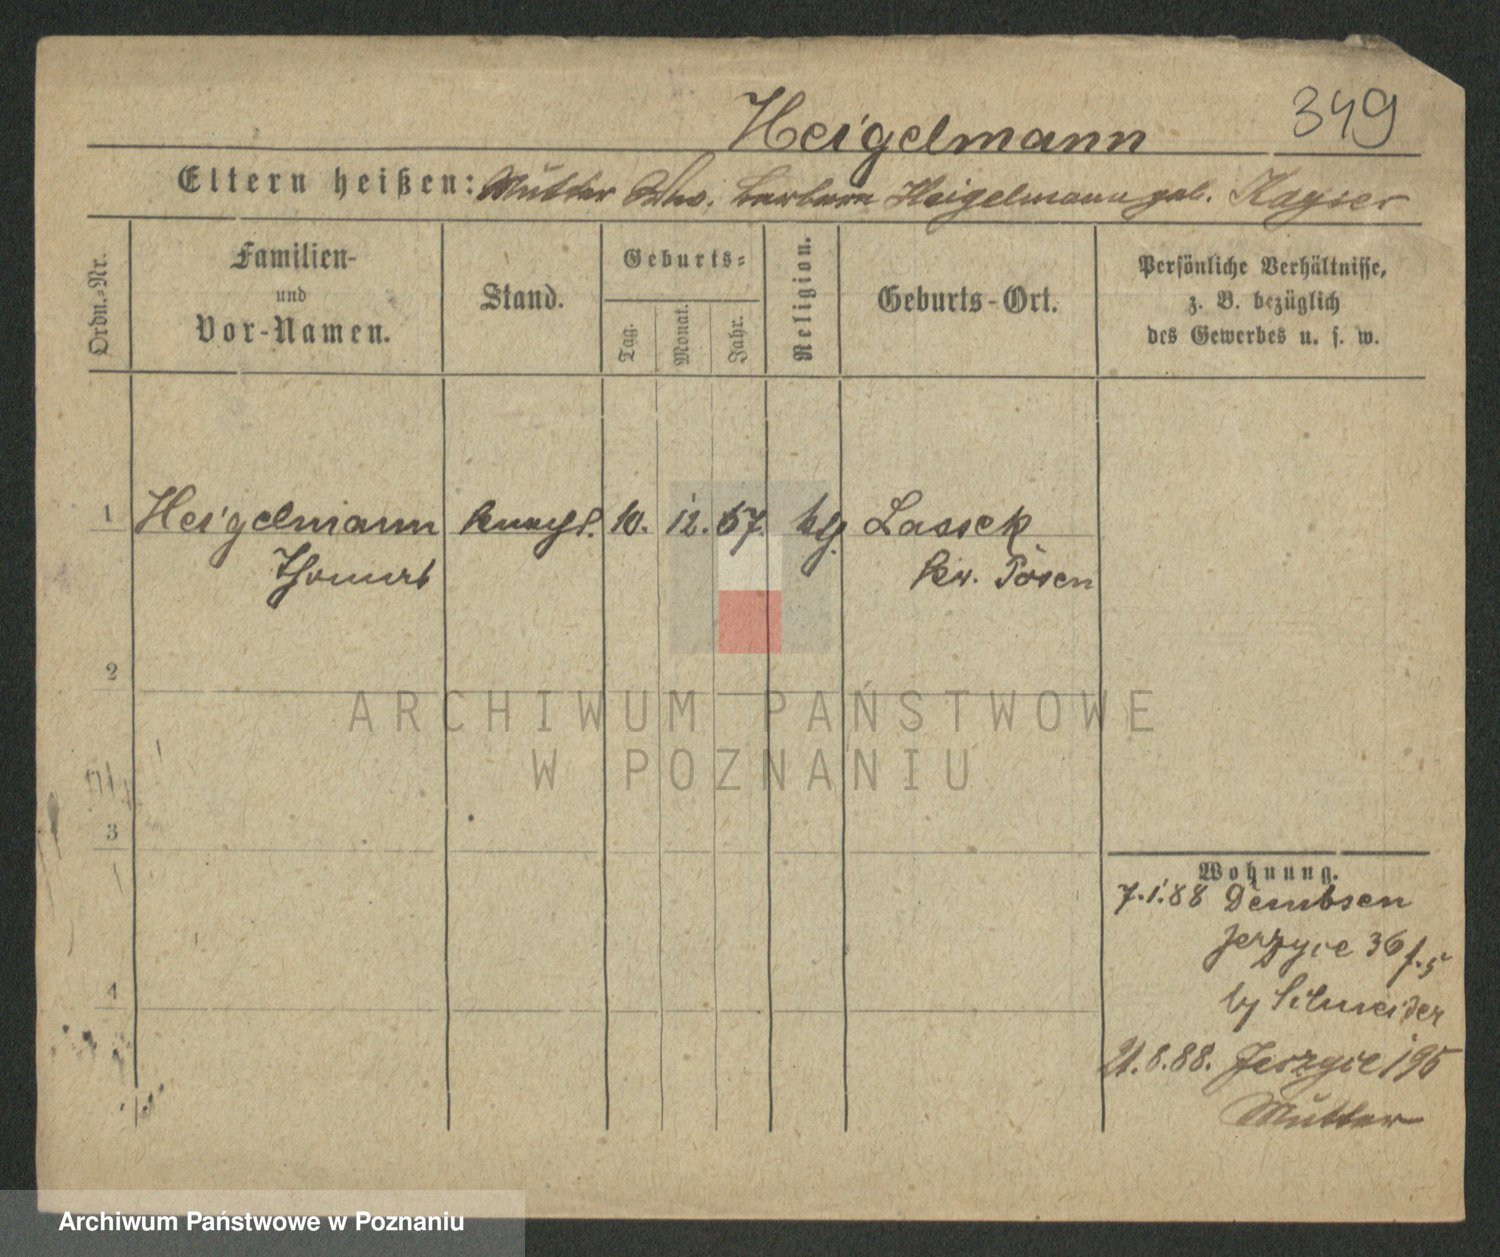 349
Heigelmann
Eltern heißen: Mutter Ww. Barbara Heigelmann geb. Kayser
Ordn.-Nr.
Familien-
und
Vor-Namen.
Stand.
Geburts-
Tag.
Monat.
Jahr.
Religion.
Geburts-Ort.
Persönliche Verhältnisse,
z. B. bezüglich
des Gewerbes u. s. w.
1 Heigelmann Knecht. 10. 12. 67. klg. Lassek
Thomas Kr. Posen
2
3
4
Wohnung.
7.1.88 Dembsen
Jerzyce 36 f. 5
by Schneider
21.8.88. Jerzyce 195
Mutter
ARCHIWUM PAŃSTWOWE
W POZNANIU
Archiwum Państwowe w Poznaniu